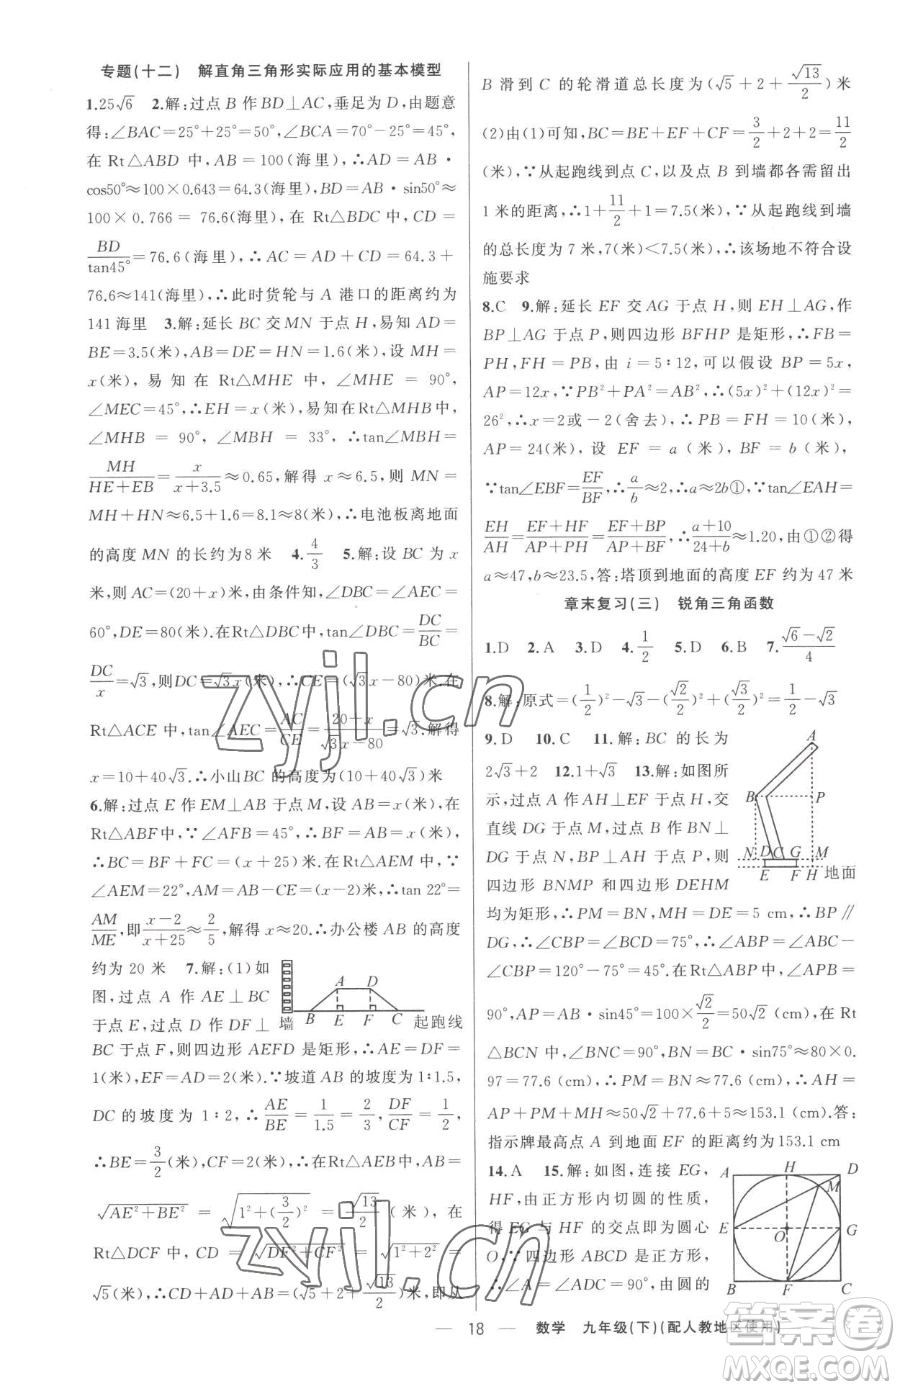 专题(十二) 解直角三角形实际应用的基本模型
1.25√6 2.解:过点 B 作 BD⊥AC,垂足为 D,由题意
得:∠BAC=25°+25°=50°,∠BCA=70°-25°=45°,
在 Rt△ABD 中,AB=100(海里),∴AD=AB·
cos50°≈100×0.643=64.3(海里),BD=AB·sin50°≈
100×0.766=76.6(海里),在 Rt△BDC 中,CD=
BD/tan45°=76.6(海里),∴AC=AD+CD=64.3+
76.6≈141(海里),∴此时货轮与 A 港口的距离约为
141 海里 3.解:延长 BC 交 MN 于点 H,易知 AD=
BE=3.5(米),∵AB=DE=HN=1.6(米),设 MH=
x(米),易知在 Rt△MHE 中,∠MHE=90°,
∠MEC=45°,∴EH=x(米),易知在 Rt△MHB 中,
∠MHB=90°,∠MBH=33°,∴tan∠MBH=
MH/(HE+EB)=x/(x+3.5)≈0.65,解得 x≈6.5,则 MN=
MH+HN≈6.5+1.6=8.1≈8(米),∴电池板离地面
的高度 MN 的长约为8 米 4.4/3 5.解:设 BC 为 x
米,则 AC=(20+x)米,由题意知∠DBC=∠AEC=
60°,DE=80(米),在Rt△DBC 中,tan∠DBC=DC/BC=
DC/x=√3,则DC=√3x(米),∴CE=(√3x-80)(米).在
Rt△ACE 中,tan∠AEC=AC/CE=(20+x)/(√3x-80)=√3.解得
x=10+40√3.∴小山BC 的高度为(10+40√3)米
6.解:过点 E 作EM⊥AB 于点 M,设 AB=x(米),在
Rt△ABF中,∵∠AFB=45°,∴BF=AB=x(米),
∴BC=BF+FC=(x+25)米,在 Rt△AEM 中,∵
∠AEM=22°,AM=AB-CE=(x-2)(米),∴tan 22°=
AM/ME,即(x-2)/(x+25)≈2/5,解得 x≈20.∴办公楼 AB 的高度
约为 20 米 7.解:(1)如
图,过点 A 作 AE⊥BC
于点 E,过点 D 作 DF⊥
墙 B E F C 起跑线
A D
BC 于点 F,则四边形 AEFD 是矩形,∴AE=DF=
1(米),EF=AD=2(米).∵坡道 AB 的坡度为 1∶1.5,
DC 的坡度为 1∶2,∴AE/BE=1/1.5=2/3,DF/CF=1/2,
∴BE=3/2(米),CF=2(米),在 Rt△ABE 中,AB=
√(AE²+BE²)=√(1²+(3/2)²)=√13/2(米),在
Rt△DCF 中,CD=√(DF²+CF²)=√(1²+2²)=
√5(米),∴CD+AD+AB=(√5+2+√13/2)米,即从
B 滑到 C 的轮滑道总长度为(√5+2+√13/2)米
(2)由(1)可知,BC=BE+EF+CF=3/2+2+2=11/2
(米),∵从起跑线到点 C,点 B 到墙都各需留出
1 米的距离,∴1+11/2+1=7.5(米),∵从起跑线到墙
的总长度为 7 米,7(米)<7.5(米),∴该场地不符合设
施要求
8.C 9.解:延长 EF 交 AG 于点 H,则 EH⊥AG,作
BP⊥AG 于点 P,则四边形 BFHP 是矩形,∴FB=
PH,FH=PB,由 i=5∶12,可以假设 BP=5x,
AP=12x,∵PB²+PA²=AB²,∴(5x)²+(12x)²=
26²,∴x=2或-2(舍去),∴PB=FH=10(米),
AP=24(米),设 EF=a(米),BF=b(米),
∵tan∠EBF=EF/BF,∴a/b≈2,∴a≈2b①,∵tan∠EAH=
EH/AH=(EF+HF)/(AP+PH)=(EF+BP)/(AP+BF),∴(a+10)/(24+b)≈1.20,由①②得
a≈47,b≈23.5,答:塔顶到地面的高度 EF 约为 47 米
章末复习(三) 锐角三角函数
1.D 2.A 3.D 4.1/2 5.D 6.B 7.(√6-√2)/4
8.解:原式=(1/2)²-√3-(√2/2)²+(√3/2)²=1/2-√3
9.D 10.C 11.解:BC 的长为
2√3+2 12.1+√3 13.解:如图所
示,过点 A 作 AH⊥EF 于点 H,交
直线 DG 于点 M,过点 B 作 BN⊥
DG 于点 N,BP⊥AH 于点 P,则
四边形 BNMP 和四边形 DEHM
A
B P
N D C G M
E F H 地面
均为矩形,∴PM=BN,MH=DE=5 cm,∴BP∥
DG,∴∠CBP=∠BCD=75°,∴∠ABP=∠ABC-
∠CBP=120°-75°=45°,在 Rt△ABP 中,∠APB=
90°,AP=AB·sin45°=100×√2/2=50√2(cm),在 Rt
△BCN 中,∠BNC=90°,BN=BC·sin75°≈80×0.
97=77.6(cm),∴PM=BN=77.6(cm),∴AH=
AP+PM+MH=50√2+77.6+5≈153.1(cm).答:
指示牌最高点 A 到地面 EF 的距离约为153.1 cm
14.A 15.解:如图,连接 EG,
HF,由正方形内切圆的性质,
得 EG 与 HF 的交点即为圆心
O,∵四边形 ABCD 是正方形,
∴∠A=∠ADC=90°,由圆的
A H D
M
E O G
B F C
— 18 — 数学 九年级(下)(配人教地区使用)
zyjl.cn
zyjl.cn
答案圈
MXQE.COM